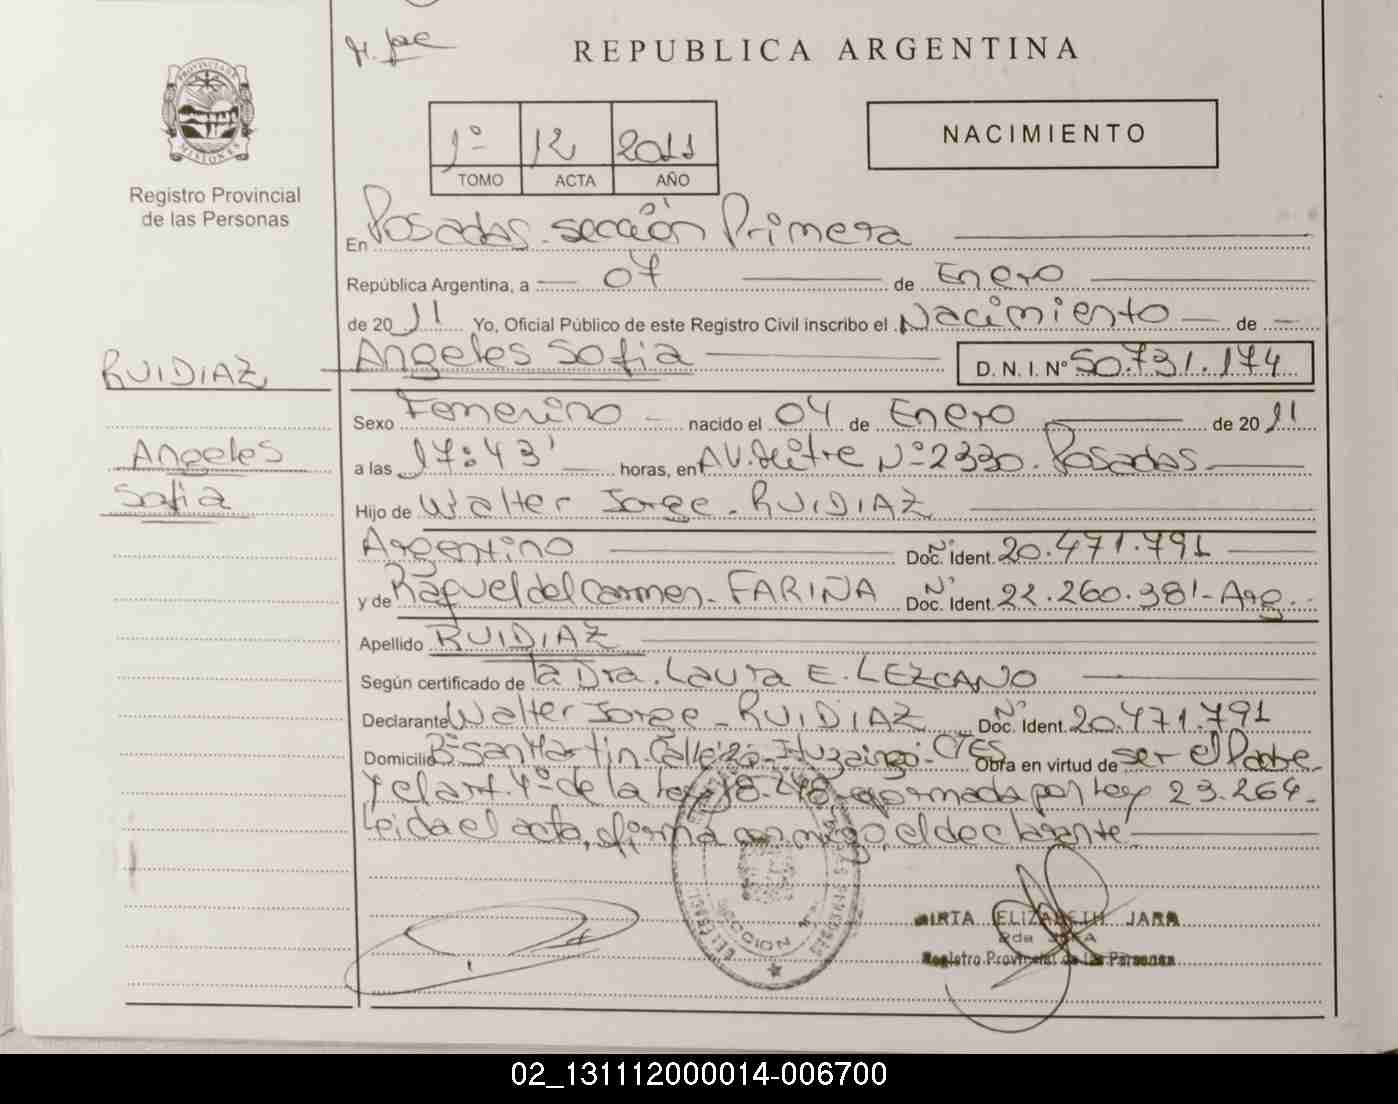 REPUBLICA ARGENTINA
PROVINCIA DE MISIONES
Registro Provincial
de las Personas
1º 12 2011
TOMO ACTA AÑO
NACIMIENTO
En Posadas. sección Primera
República Argentina, a 07 de Enero
de 2011 Yo, Oficial Público de este Registro Civil inscribo el Nacimiento de
Angeles Sofia D. N. I. Nº 50.731.174
RUIDIAZ
Angeles
Sofia
Sexo Femenino nacido el 04 de Enero de 2011
a las 17:43' horas, en AV. Mitre Nº 2330. Posadas
Hijo de Walter Jorge. RUIDIAZ
Argentino Doc. Ident. Nº 20.471.791
y de Raquel del Carmen. FARIÑA Doc. Ident. Nº 22.260.381-Arg.
Apellido RUIDIAZ
Según certificado de la Dra. Laura E. LEZCANO
Declarante Walter Jorge - RUIDIAZ Doc. Ident. Nº 20.471.791
Domicilio Bº San Martin. Ituzaingó. CTES Obra en virtud de ser el Padre
y el art. 4º de la Ley 18.248 reformada por Ley 23.264.
Leida el acta, firma conmigo, el declarante
SECCION
MIRTA ELIZABETH JARA
2da JEFA
Registro Provincial de las Personas
02_131112000014-006700